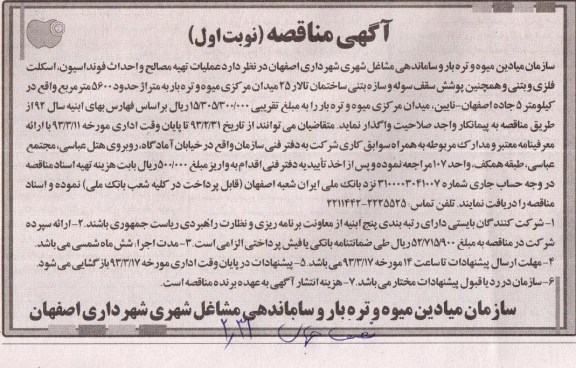 آگهی مناقصه (نوبت اول)
سازمان میادین میوه و تره بار و ساماندهی مشاغل شهری شهرداری اصفهان در نظر دارد عملیات تهیه مصالح و احداث فونداسیون، اسکلت
فلزی و بتنی و همچنین پوشش سقف سوله و سازه بتنی ساختمان تالار ۲۵ میدان مرکزی میوه و تره بار به متراژ حدود ۵۶۰۰ متر مربع واقع در
کیلومتر ۵ جاده اصفهان-نایین، میدان مرکزی میوه و تره بار را به مبلغ تقریبی ۱۵/۳۰۵/۳۰۰/۰۰۰ ریال بر اساس فهارس بهای ابنیه سال ۹۲ از
طریق مناقصه به پیمانکار واجد صلاحیت واگذار نماید. متقاضیان می توانند از تاریخ ۹۳/۲/۳۱ تا پایان وقت اداری مورخه ۹۳/۳/۱۱ با ارائه
معرفینامه معتبر و مدارک مربوطه به همراه سوابق کاری شرکت به دفتر فنی سازمان واقع در خیابان آمادگاه، روبروی هتل عباسی، مجتمع
عباسی، طبقه همکف، واحد ۱۰۷ مراجعه نموده و پس از اخذ تأییدیه دفتر فنی اقدام به واریز مبلغ ۵۰۰/۰۰۰ ریال بابت هزینه تهیه اسناد مناقصه
در وجه حساب جاری شماره ۳۱۰۰۰۰۳۰۴۱۰۰۷ نزد بانک ملی ایران شعبه اصفهان (قابل پرداخت در کلیه شعب بانک ملی) نموده و اسناد
مناقصه را دریافت نمایند. تلفن تماس: ۲۲۳۵۵۲۵-۲۲۱۱۴۴۲
۱- شرکت کنندگان بایستی دارای رتبه بندی پنج ابنیه از معاونت برنامه ریزی و نظارت راهبردی ریاست جمهوری باشند. ۲- ارائه سپرده
شرکت در مناقصه به مبلغ ۵۲/۷۱۵/۹۰۰ ریال طی ضمانتنامه بانکی یا فیش پرداختی الزامی است. ۳- مدت اجرا: شش ماه شمسی می باشد.
۴- مهلت ارسال پیشنهادات تا ساعت ۱۴ مورخه ۹۳/۳/۱۷ می باشد. ۵- پیشنهادات در پایان وقت اداری مورخه ۹۳/۳/۱۷ بازگشایی می شود.
۶- سازمان در رد یا قبول پیشنهادات مختار می باشد. ۷- هزینه انتشار آگهی به عهده برنده مناقصه است.
سازمان میادین میوه و تره بار و ساماندهی مشاغل شهری شهرداری اصفهان
نصف جهان ۲٫۳۱